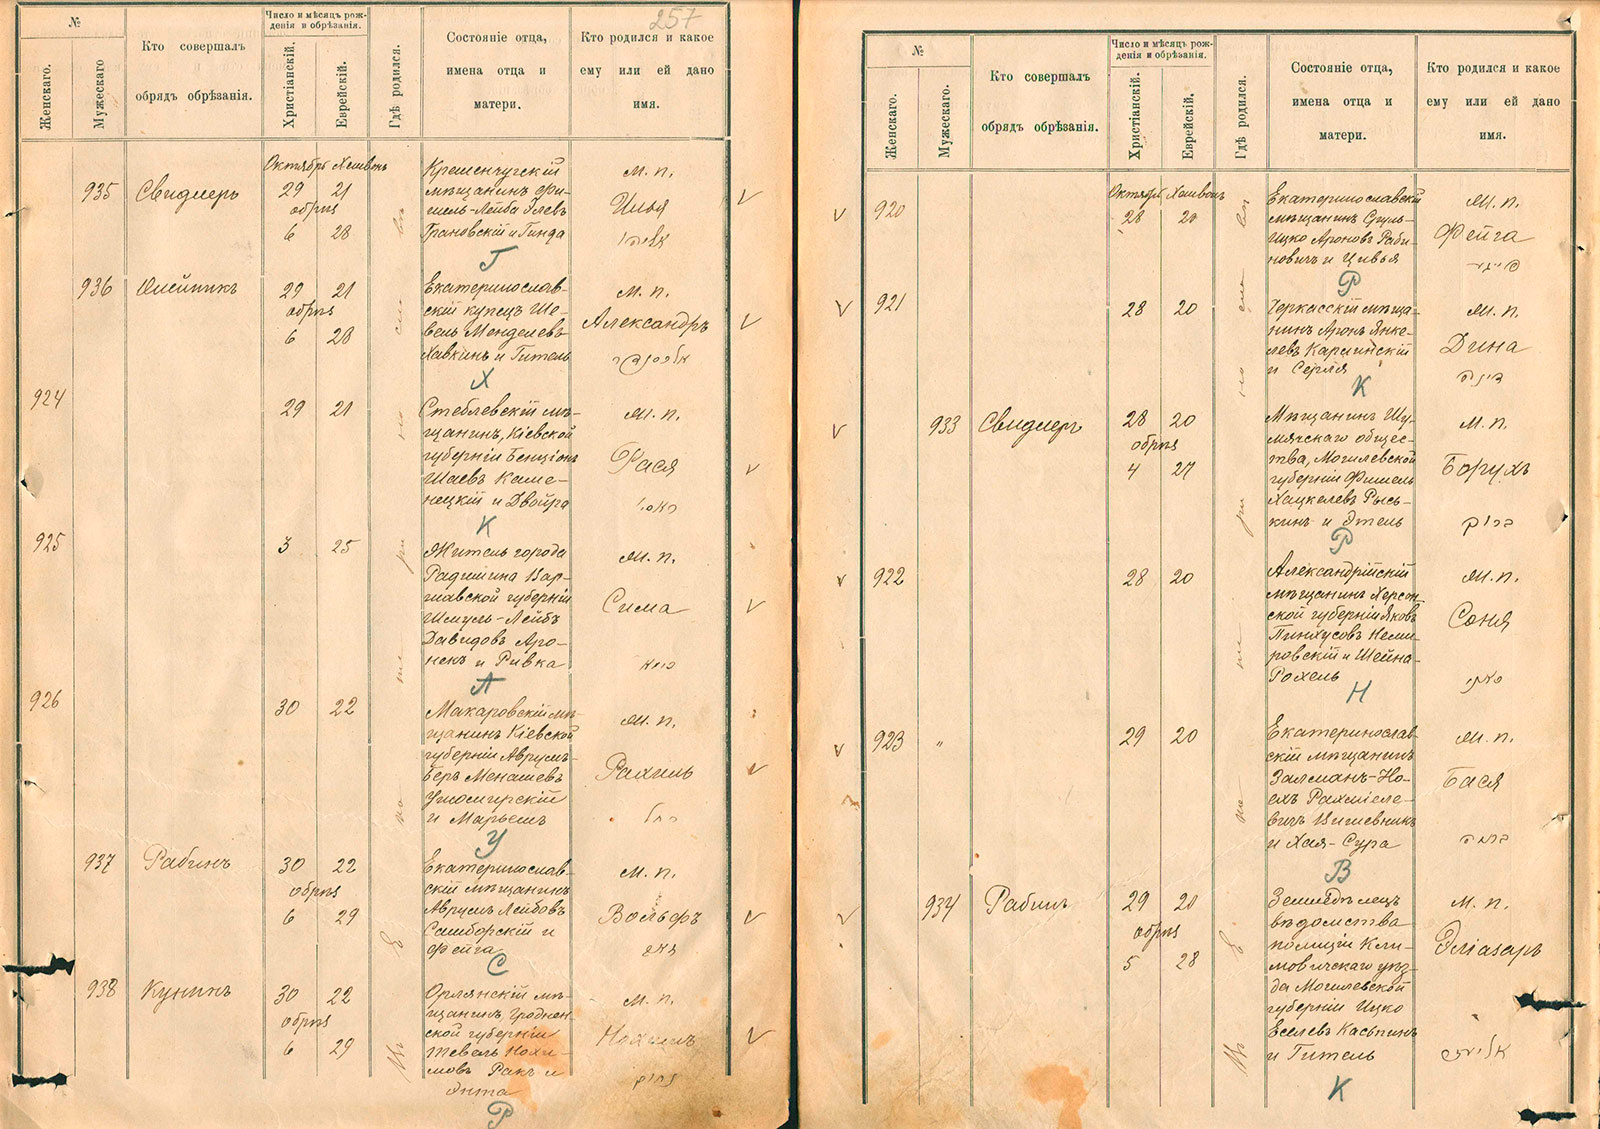 257
№
Женскаго.
Мужескаго
Кто совершалъ
обрядъ обрѣзанія.
Число и мѣсяцъ рож-
денія и обрѣзанія.
Христіанскій.
Еврейскій.
Гдѣ родился.
Состояніе отца,
имена отца и
матери.
Кто родился и какое
ему или ей дано
имя.
Октябрь Хешвонъ
935 Свидлеръ 29 21
обрѣз
6 28
Кременчугскій
мѣщанинъ Фи-
шель-Лейба
Грановскій и Гинда
м. п.
Илья
Г
936 29 21
обрѣз
6 28
Екатеринослав-
скій купецъ Ше-
вель Менделевъ
Хавкинъ и Гитель
м. п.
Александръ
Х
924 29 21
Стеблевскій мѣ-
щанинъ, Кіевской
губерніи Бенціонъ
Шаевъ Каме-
нецкій и Двойра
м. п.
Рася
К
925 3 25
Житель города
Радимина Вар-
шавской губерніи
Шмуль-Лейбъ
Давидовъ Аро-
ненъ и Ривка
м. п.
Сима
А
926 30 22
Макаровскій мѣ-
щанинъ Кіевской
губерніи Аврумъ-
Беръ Менашевъ
и Марьемъ
м. п.
Рахиль
У
937 Рабинъ 30 22
обрѣз
6 29
Екатеринослав-
скій мѣщанинъ
Аврумъ Лейбовъ
Самборскій и
Фейга
м. п.
Вольфъ
С
938 Кунинъ 30 22
обрѣз
6 29
Орлянскій мѣ-
щанинъ, Гроднен
ской губерніи
Тевель Нохи-
мовъ Ракъ и
Энта
м. п.
Нохимъ
Р
№
Женскаго.
Мужескаго.
Кто совершалъ
обрядъ обрѣзанія.
Число и мѣсяцъ рож-
денія и обрѣзанія.
Христіанскій.
Еврейскій.
Гдѣ родился.
Состояніе отца,
имена отца и
матери.
Кто родился и какое
ему или ей дано
имя.
Октябрь Хешвонъ
920 28 20
Екатеринославскій
мѣщанинъ Сруль-
Ицко Ароновъ Раби-
новичъ и Цивья
м. п.
Фейга
Р
921 28 20
Черкасскій мѣща-
нинъ Аронъ Янке-
левъ Каршинскій
и Серля
м. п.
Дина
דינה
К
933 Свидлеръ 28 20
обрѣз
4 27
Мѣщанинъ Шу-
мячскаго общес-
тва, Могилевской
губерніи Фишель
Хацкелевъ Рысь-
кинъ и Этель
м. п.
Борухъ
ברוך
Р
922 28 20
Александрійскій
мѣщанинъ Херсон-
ской губерніи Яковъ
Пинхусовъ Неми-
ровскій и Шейна-
Рохель
м. п.
Соня
Н
923 " 29 20
Екатеринослав-
скій мѣщанинъ
Залманъ-Но-
ехъ Рахміеле-
вичъ Вишевникъ
и Хая-Сура
м. п.
Бася
В
934 Рабинъ 29 21
обрѣз
5 28
Земледѣлецъ
вѣдомства
полиціи Кли-
мовичскаго уѣз-
да Могилевской
губерніи Ицко
Еселевъ Каспинъ
и Гитель
м. п.
Эліазаръ
К